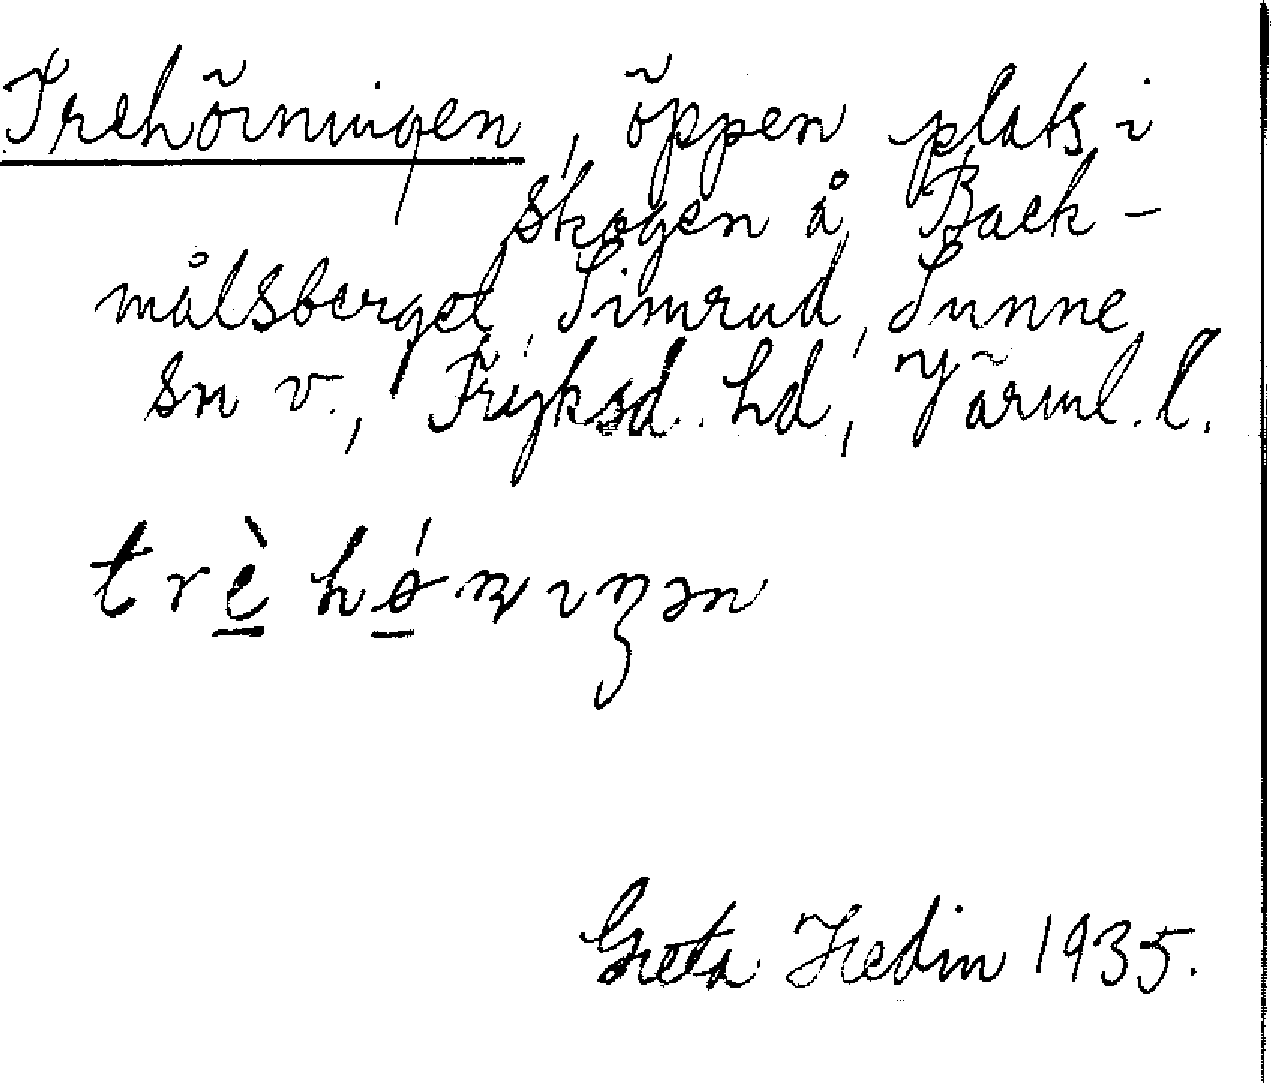 Trehörningen, öppen plats i
skogen å Back-
målsberget, Simrud, Sunne
sn v., Fryksd. hd, Värml. l.
trὲ hǿɳɩŋən
Greta Hedin 1935.